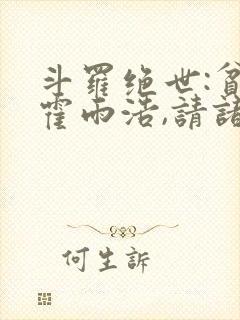 斗羅绝世:貧
霍雨浩,請諸
何生訴